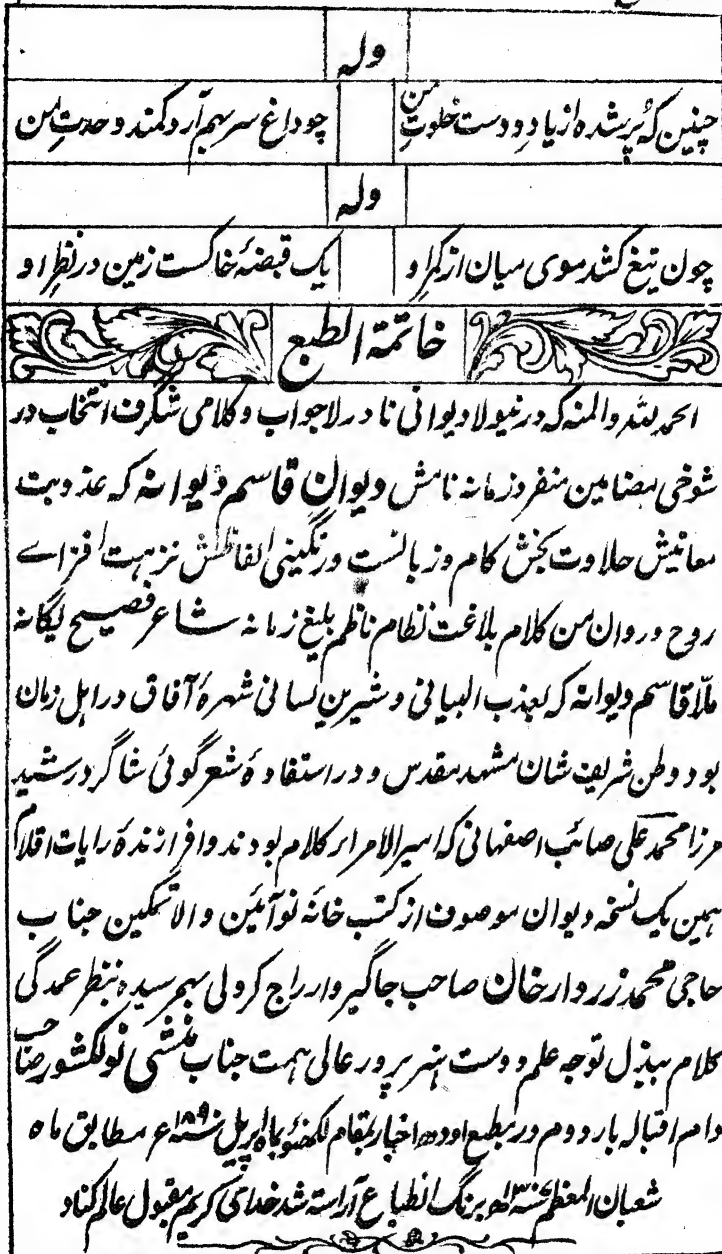 وله
چنین که پُر شده از یاد دوست خلوتِ من
چو داغ سر بهم آرد کمند وحدتِ من
وله
چون تیغ کشد موی میان از کمرِ او
یک قبضهٔ خاکست زمین در نظرِ او
خاتمة الطبع
الحمد لله والمنه که درینولا دیوانی نادر لاجواب و کلامی شگرف انتخاب در
شوخی مضامین منفرد زمانه نامش دیوان قاسم دیوانه که عذوبت
معانیش حلاوت بخش کام و زبانست و رنگینی الفاظش نزهت افزاے
روح و روان من کلام بلاغت نظام ناظم بلیغ زمانه شاعر فصیح یگانه
ملّا قاسم دیوانه که بعذب البیانی و شیرین لسانی شهرهٔ آفاق در اهل زمان
بود وطن شریف شان مشهد مقدس و در استفادهٔ شعر گوئی شاگرد رشید
مرزا محمد علی صائب اصفهانی که امیر الامراء کلام بودند و افرازندهٔ رایات اقلام
همین یک نسخه دیوان موصوف از کتب خانهٔ نو آئین والا تمکین جناب
حاجی محمد زردار خان صاحب جاگیردار راج کرولی بهم رسیده بنظر عمدگی
کلام ببذل توجه علم دوست هنر پرور عالی همت جناب منشی نولکشور صاحب
دام اقباله بار دوم در مطبع اودهه اخبار بمقام لکهنؤ بماه اپریل سنه ۱۸۹۰ع مطابق ماه
شعبان المعظم سنه ۱۳۰۷ه برنگ انطباع آراسته شد خدای کریم مقبول عالم کناد